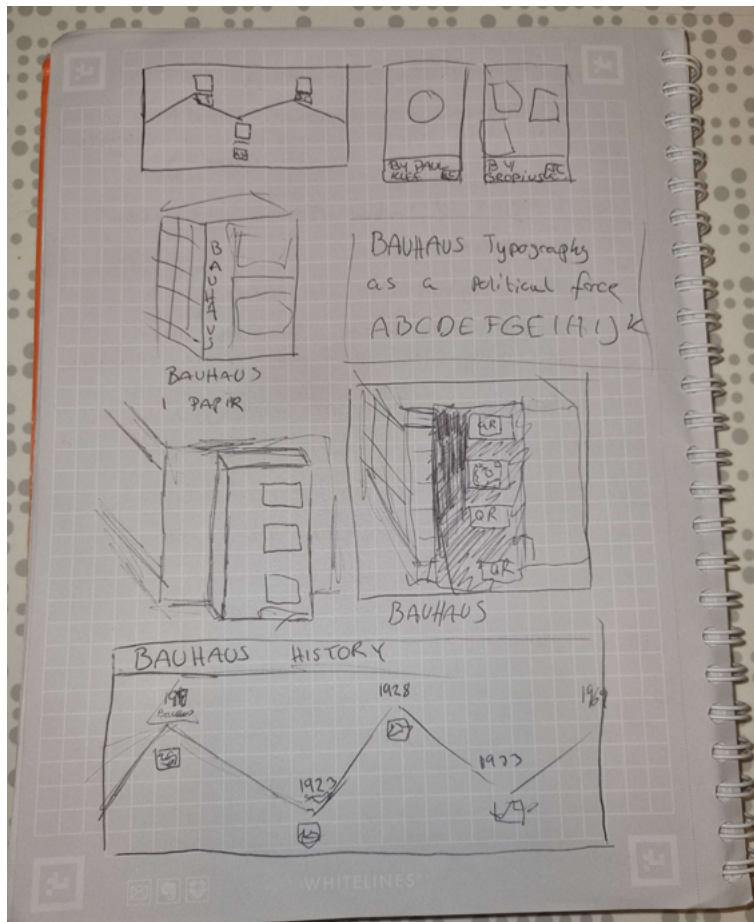 BY PAUL
KLEE
BY
GROPIUS
BAUHAUS
BAUHAUS Typography
as a Political force
ABCDEFGE
BAUHAUS
I PAPIR
QR
QR
QR
BAUHAUS
BAUHAUS HISTORY
1928
1923
WHITELINES